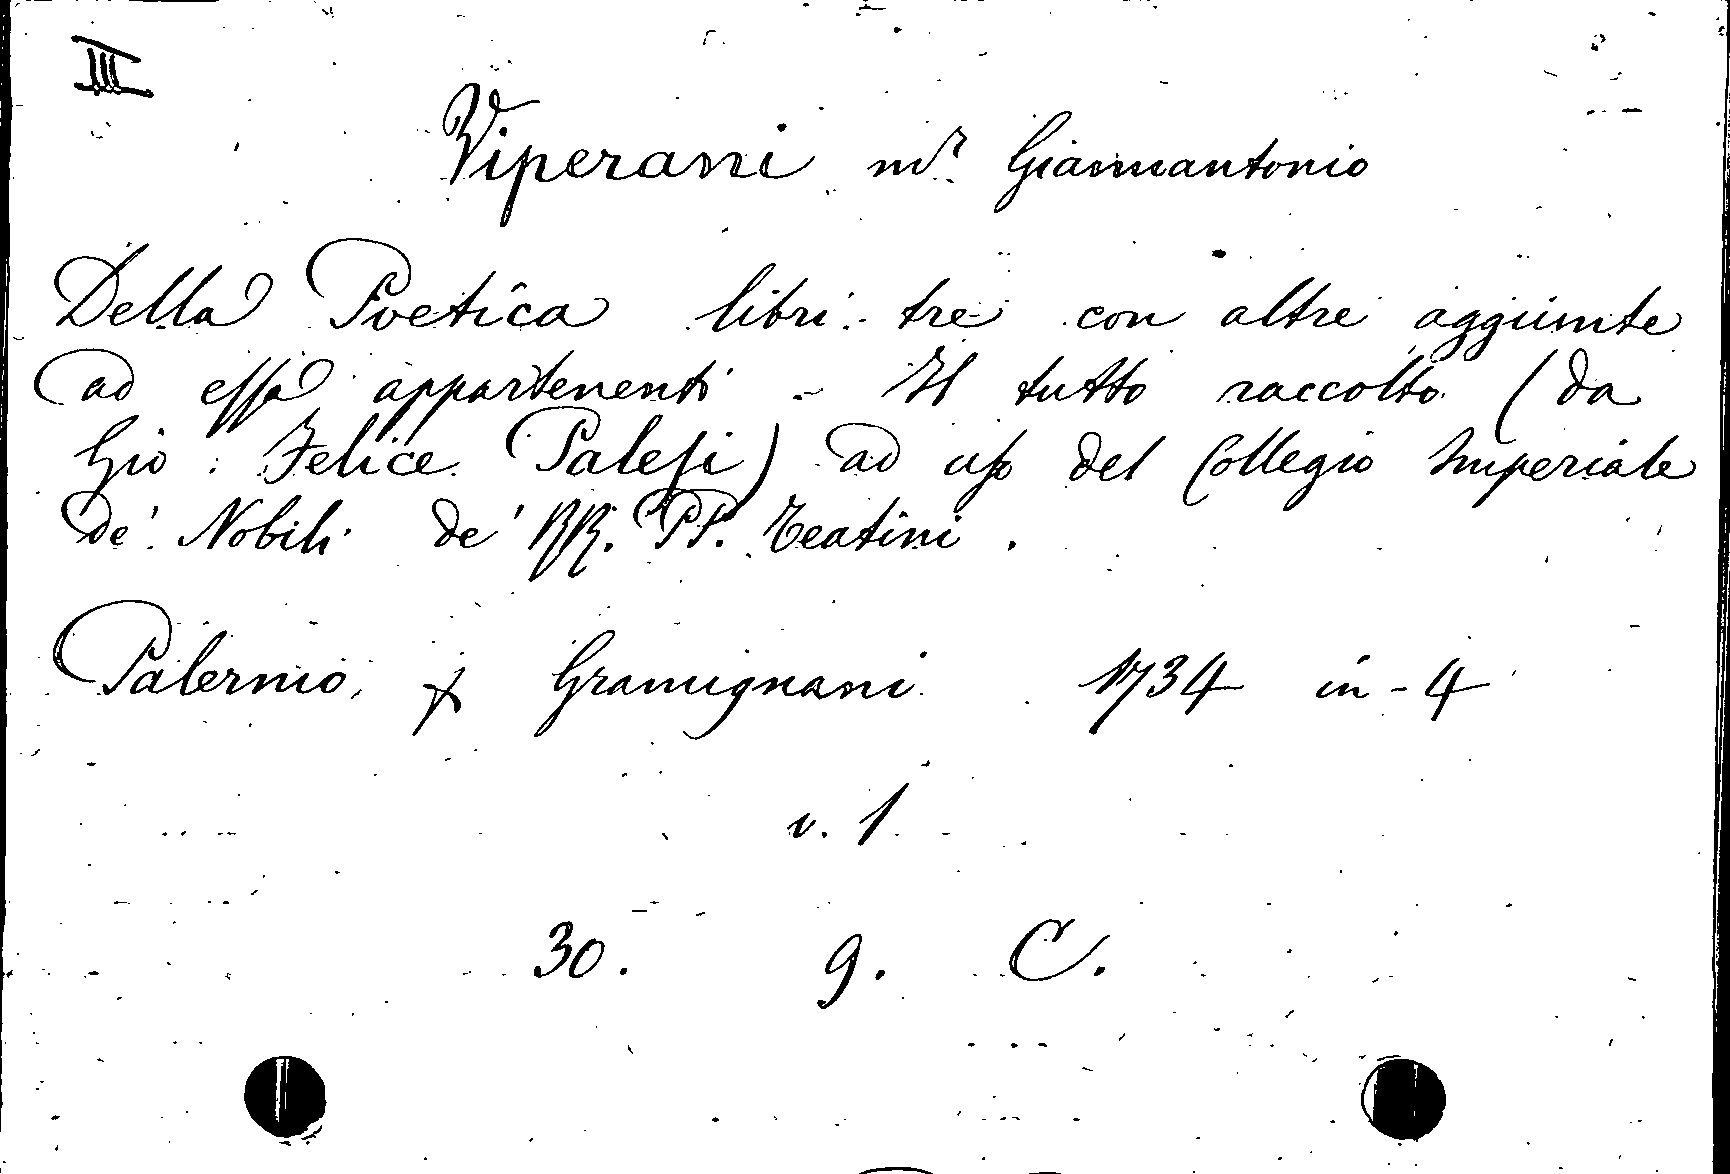 III
Viperani m.r Giannantonio
Della Poetica libri tre con altre aggiunte
ad essa appartenenti - Il tutto raccolto (da
Gio: Felice Palesi) ad uso del Collegio Imperiale
de' Nobili de' RR. PP. Teatini.
Palermo, x Gramignani 1734 in-4
v. 1
30. 9. C.